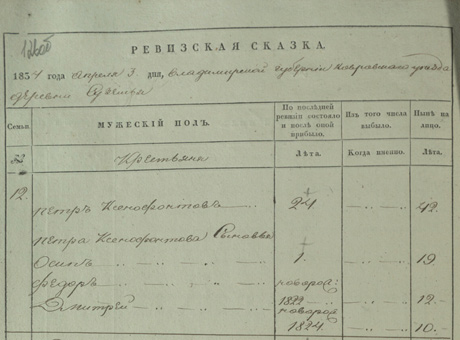 1260б
РЕВИЗСКАЯ СКАЗКА.
1834 года Апреля 3. дня, Владимирской губернии Ковровского уезда
деревни
Семьи. МУЖЕСКІЙ ПОЛЪ. По последней ревизіи состояло и после оной прибыло. Изъ того числа выбыло. Ныне на лицо.
Лѣта. Когда именно. Лѣта.
Крестьяне
12.
Петръ Ксенофонтовъ 24 42.
Петра Ксенофонтова Сыновья
Осипъ 1. 19
Федоръ новорож: 1822 12.
Дмитрей новорож 1824 10.